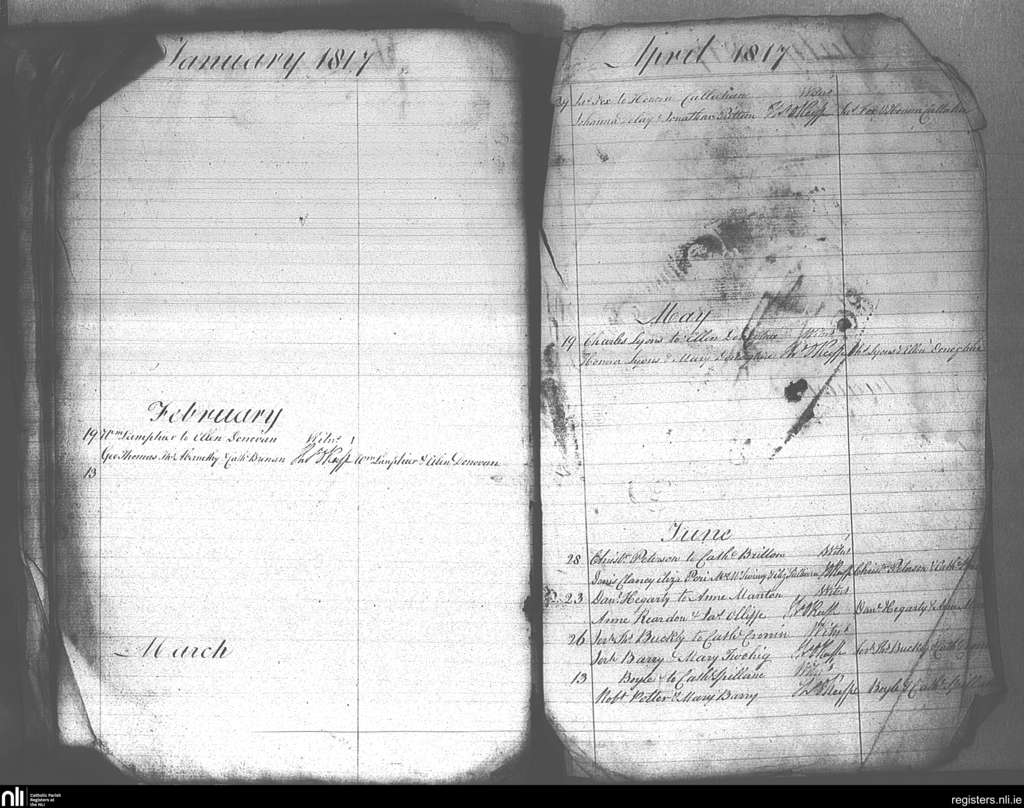 January 1817
February
19 Wm Lamphier to Ellen Donovan Witns
Geo Thomas Thos & Cathe Brenan Jas O'Keeffe Wm Lamphier & Ellen Donovan
13
March
April 1817
Jas Fox to Honora Callaghan Witns
Johanna Hay & Jonathan Jas O'Keeffe Jas Fox & Honora Callahan
May
19 Charles Lyons to Ellen Witns
Honora Lyons & Mary Jas O'Keeffe Chas Lyons & Ellen Doneghue
June
28 Christr Peterson to Cathe Brillon Witns
Denis Clancy Eliza O'Keeffe Christr Peterson & Cathe
23 Danl Hegarty to Anne Manton Witns
Anne Reardon & Jas Olliffe Jas O'Keeffe Danl Hegarty & Anne
26 Jerh Thos Buckly to Cathe Cronin Witns
Jerh Barry & Mary Twohig Jas O'Keeffe Jerh Thos Buckly & Cathe
13 Boyle to Cathe Spillane Witns
Robt Potter & Mary Barry Jas O'Keeffe Boyle & Cathe
nli
Catholic Parish
Registers at
the NLI
registers.nli.ie